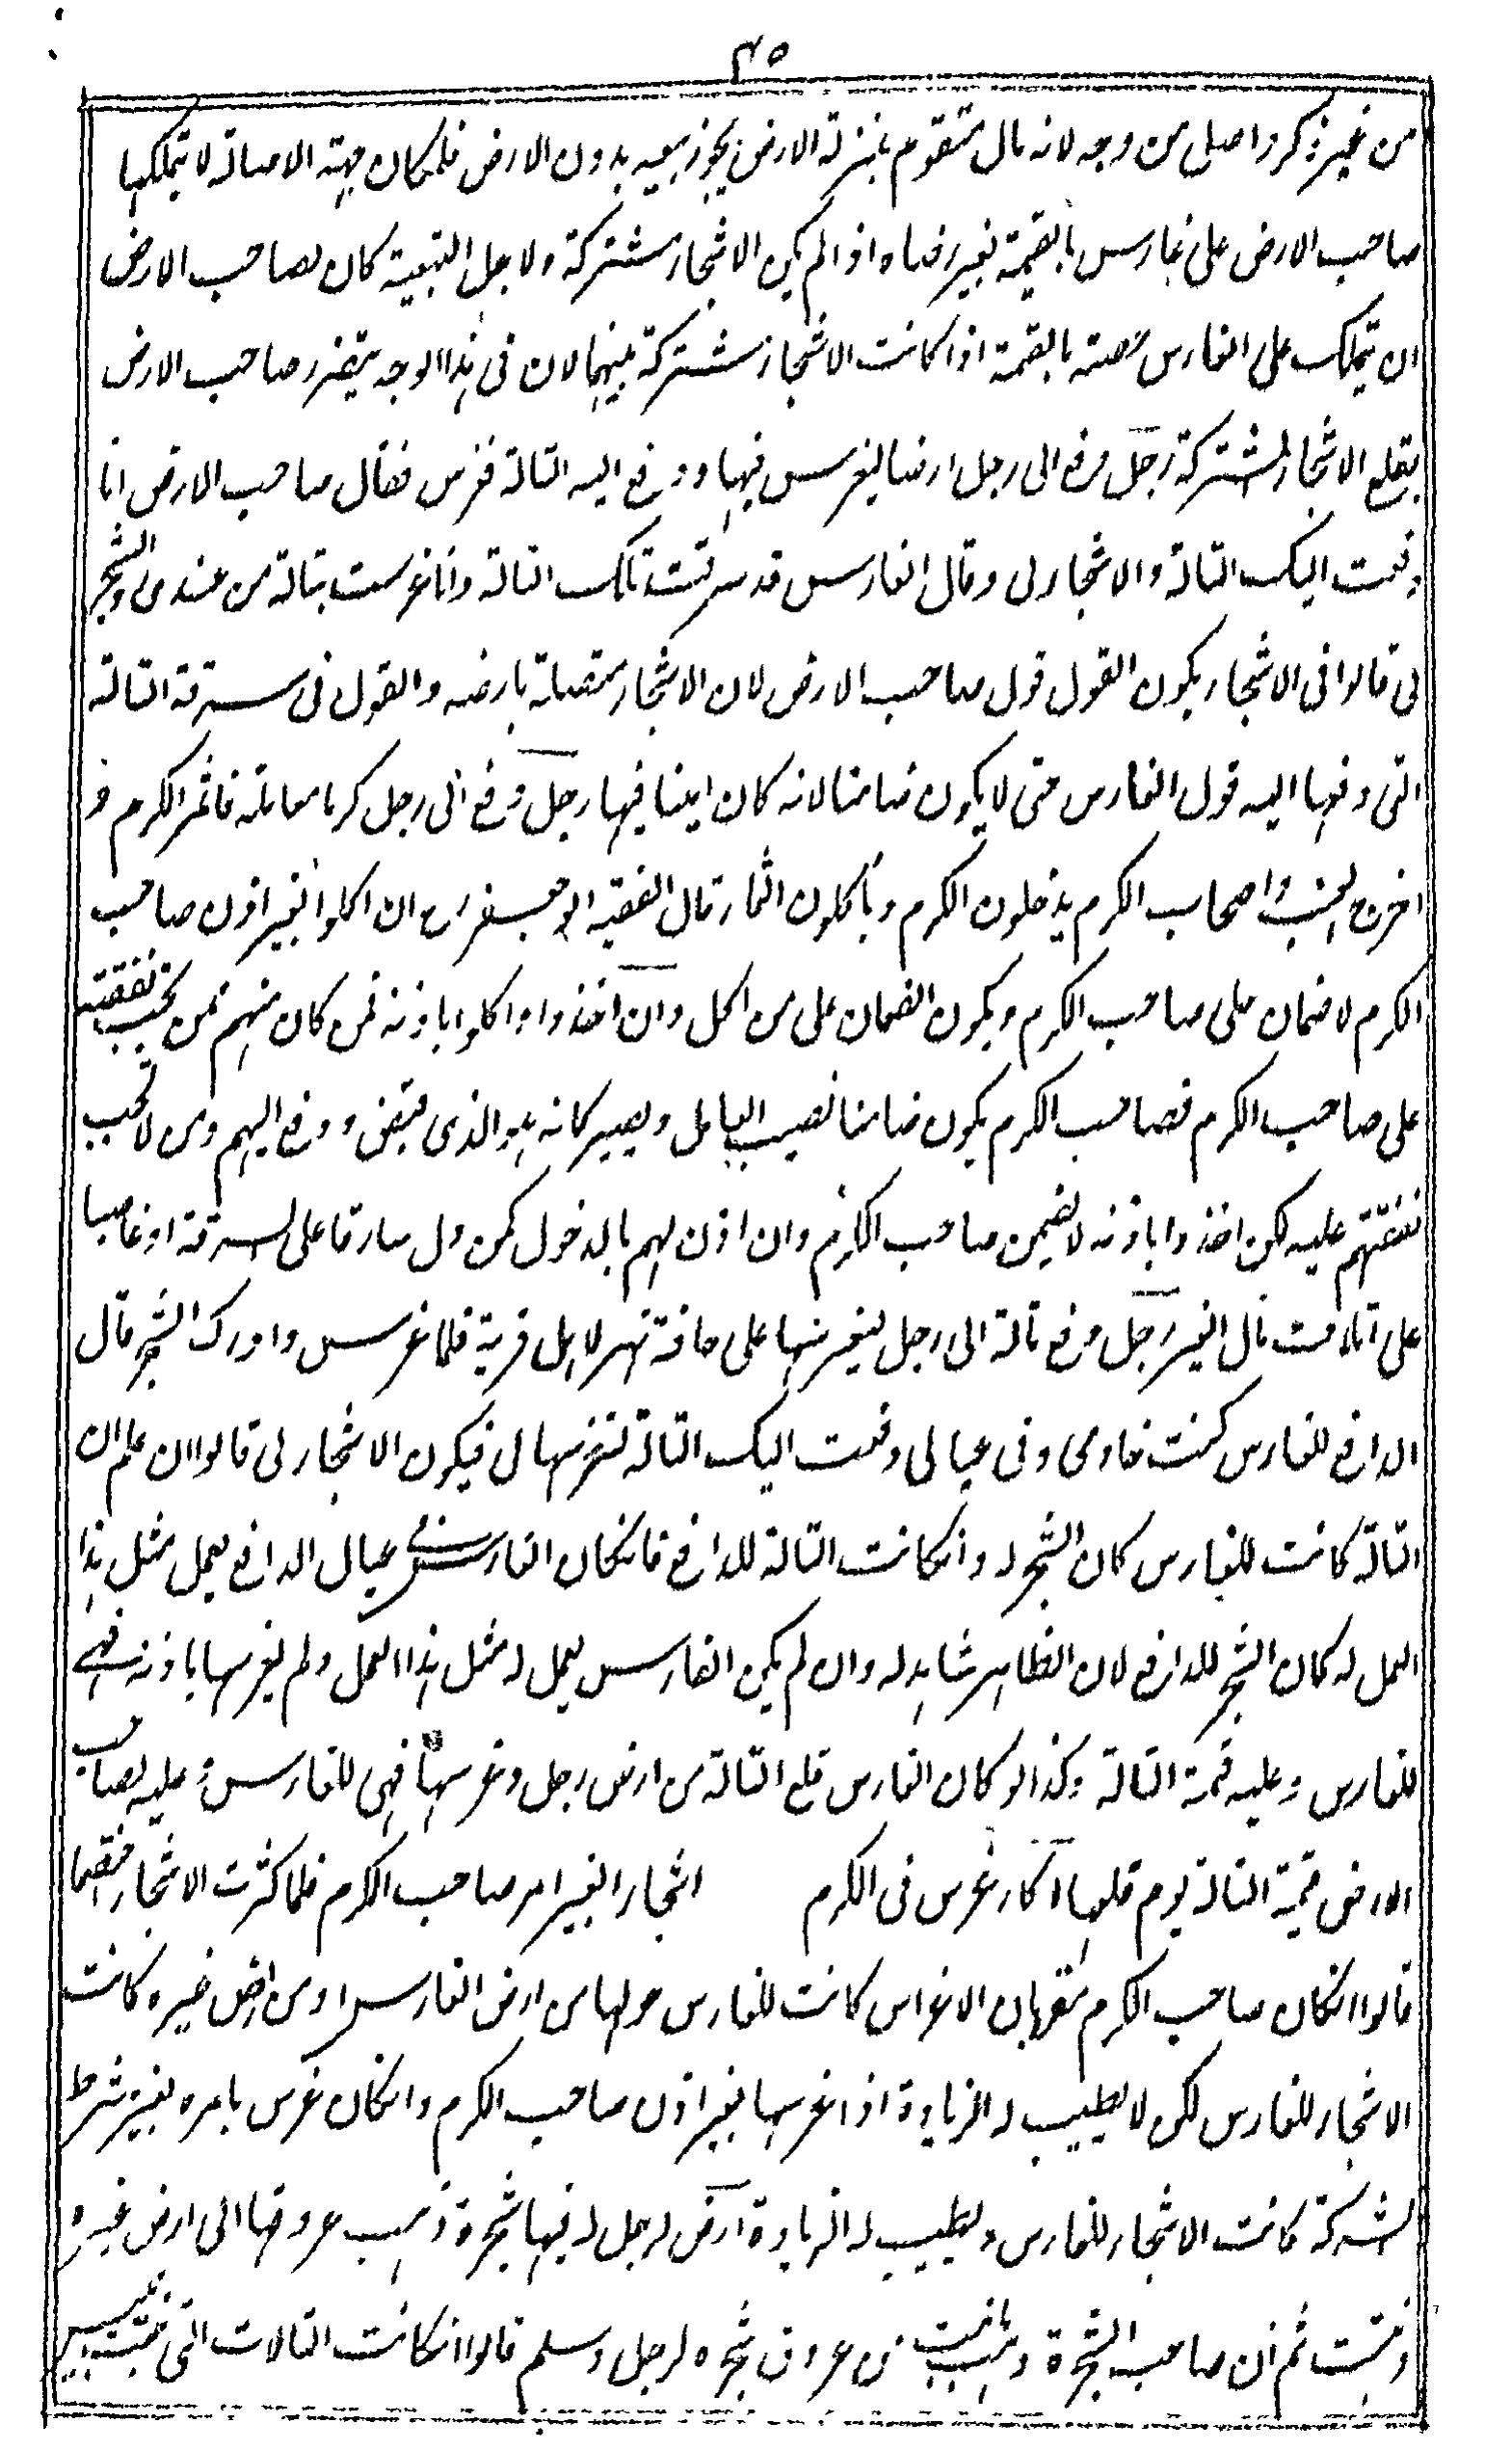 ٤٥
من غير ذكر واصل من وجه لانه مال متقوم بمنزلة الارض يجوز بيعه بدون الارض فلمكان جهة الاصالة لا يتملكها
صاحب الارض على الغارس بالقيمة بغير رضاه اذا لم يكن الاشجار مشتركة ولاجل التبعية كان لصاحب الارض
ان يتملك على الغارس حصته بالقيمة اذا كانت الاشجار مشتركة بينهما لان فى هذا الوجه يتضرر صاحب الارض
بقلع الاشجار المشتركة رجل دفع الى رجل ارضا ليغرس فيها ودفع اليه التالة فغرس فقال صاحب الارض انا
دفعت اليك التالة والاشجار لى وقال الغارس قد سرقت تلك التالة وانا غرست بتالة من عندى والشجر
لى قالوا فى الاشجار يكون القول قول صاحب الارض لان الاشجار متصلة بارضه والقول فى سرقة التالة
التى دفعها اليه قول الغارس حتى لا يكون ضامنا لانه كان امينا فيها رجل دفع الى رجل كرما معاملة فاثمر الكرم و
اخرج العنب واصحاب الكرم يدخلون الكرم ويأكلون الثمار قال الفقيه ابو جعفر رح ان اكلوا بغير اذن صاحب
الكرم لا ضمان على صاحب الكرم ويكون الضمان على من اكل وان اخذوا واكلوا باذنه فمن كان منهم ممن تجب نفقته
على صاحب الكرم فصاحب الكرم يكون ضامنا نصيب العامل ويصير كانه هو الذى قبض ودفع اليهم ومن لا تجب
نفقتهم عليه لكن اخذوا باذنه لا يضمن صاحب الكرم وان اذن لهم بالدخول كمن دل سارقا على السرقة او غاصبا
على اتلاف مال الغير رجل دفع تالة الى رجل ليغرسها على حافة نهر لاهل قرية فلما غرس وادرك الشجر قال
الدافع للغارس كنت خادمى وفى عيالى دفعت اليك التالة لتغرسها لى فيكون الاشجار لى قالوا ان علم ان
التالة كانت للغارس كان الشجر له وانكانت التالة للدافع فانكان الغارس فى عيال الدافع يعمل مثل هذا
العمل له كان الشجر للدافع لان الظاهر شاهد له وان لم يكن الغارس يعمل له مثل هذا العمل ولم يغرسها باذنه فهى
للغارس وعليه قيمة التالة وكذا لو كان الغارس قلع التالة من ارض رجل وغرسها فهى للغارس وعليه لصاحب
الارض قيمة التالة يوم قلعها اكار غرس فى الكرم اشجارا بغير امر صاحب الكرم فلما كثرت الاشجار اختصما
قالوا انكان صاحب الكرم مقرا بان الاغراس كانت للغارس حولها من ارض الغارس او من ارض غيره كانت
الاشجار للغارس لكن لا يطيب له الزيادة اذا غرسها بغير اذن صاحب الكرم وانكان غرس بامره بغير شرط
الشركة كانت الاشجار للغارس ويطيب له الزيادة ارض لرجل له فيها شجرة ذهب عروقها الى ارض غيره
ونبتت ثم ان صاحب الشجرة وهب ما نبت من عروق شجره لرجل وسلم قالوا انكانت التالات التى نبتت